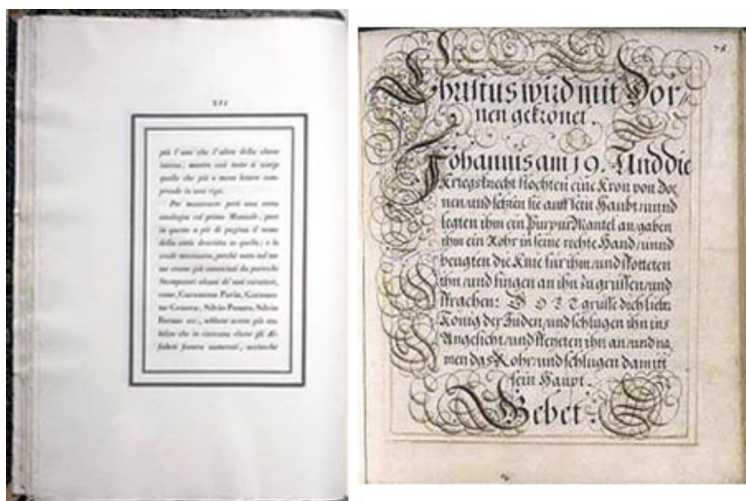 XVI
più l'uno che l'altro della classe
intesa; mentre così tosto si scorge
quello che più o meno lettere com-
prende in una riga.
Per mantenere però una certa
analogia col primo Manuale, pure
in questo a piè di pagina il nome
della città descritta in quello; e lo
credi necessario, perchè noto nel me-
se erano già conosciuti da parecchi
Stampatori alcuni de' miei caratteri,
come, Garamone Pavia, Garamo-
ne Genova, Silvio Pesaro, Silvio
Fermo ecc., sebbene avessi già sta-
bilito che in ciascuna classe gli Al-
fabeti fossero numerati, acciocchè
78
Christus wird mit Dor-
nen gekrönet.
Johannis am 19. Und die
Kriegsknecht flochten eine Kron von Dor
nen, und setzten sie auff sein Haubt, unnd
legten ihm ein Purpur Mantel an, gaben
ihm ein Rohr in seine rechte Hand, unnd
beugten die Knie für ihm, und spotteten
ihn, und fingen an ihn zu grüssen, und
sprachen: GOTT grüsse dich lieber
König der Juden, und schlugen ihn ins
Angesicht, und speyeten ihn an, und na
men das Rohr, und schlugen damit
sein Haupt.
Gebet.